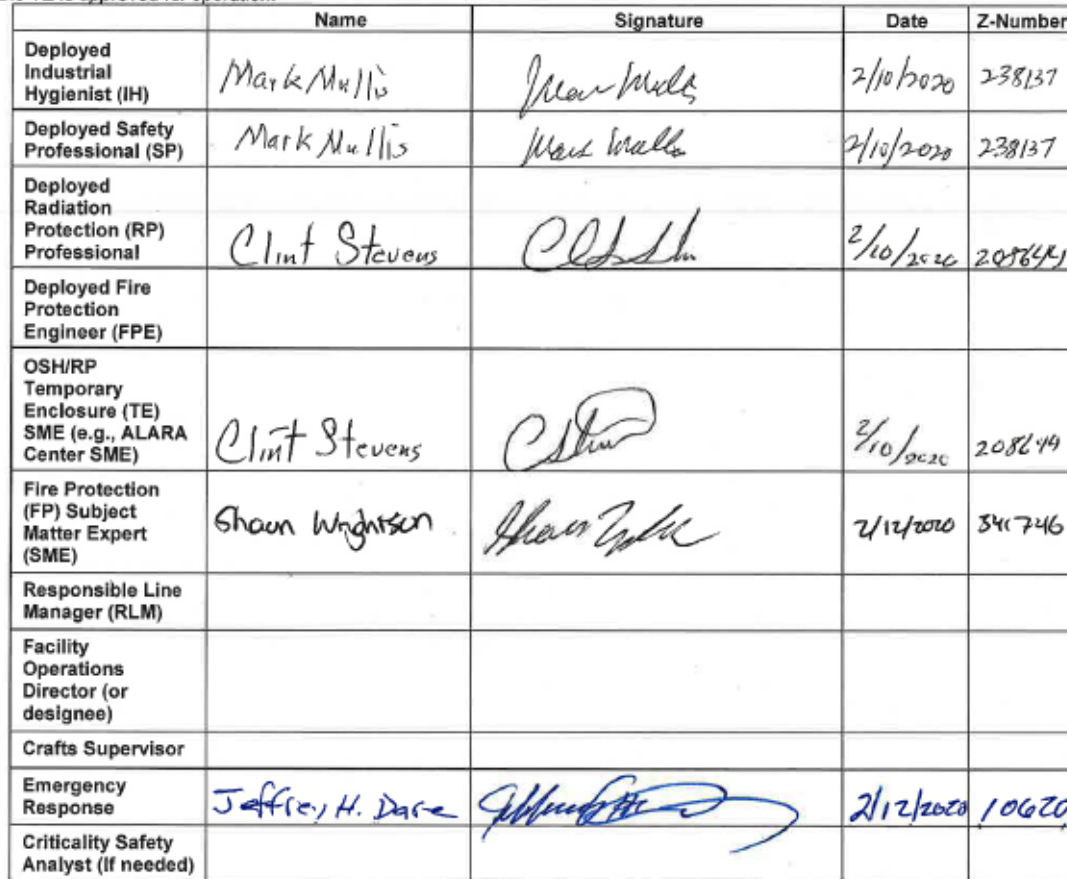 approved for operation.
Name Signature Date Z-Number
Deployed
Industrial
Hygienist (IH)
Mark Mullis 2/10/2020 238137
Deployed Safety
Professional (SP)
Mark Mullis 2/10/2020 238137
Deployed
Radiation
Protection (RP)
Professional
Clint Stevens 2/10/2020
Deployed Fire
Protection
Engineer (FPE)
OSH/RP
Temporary
Enclosure (TE)
SME (e.g., ALARA
Center SME)
Clint Stevens 2/10/2020
Fire Protection
(FP) Subject
Matter Expert
(SME)
Shaun Wrightson 2/12/2020
Responsible Line
Manager (RLM)
Facility
Operations
Director (or
designee)
Crafts Supervisor
Emergency
Response
Jeffrey H. Dare 2/12/2020
Criticality Safety
Analyst (If needed)